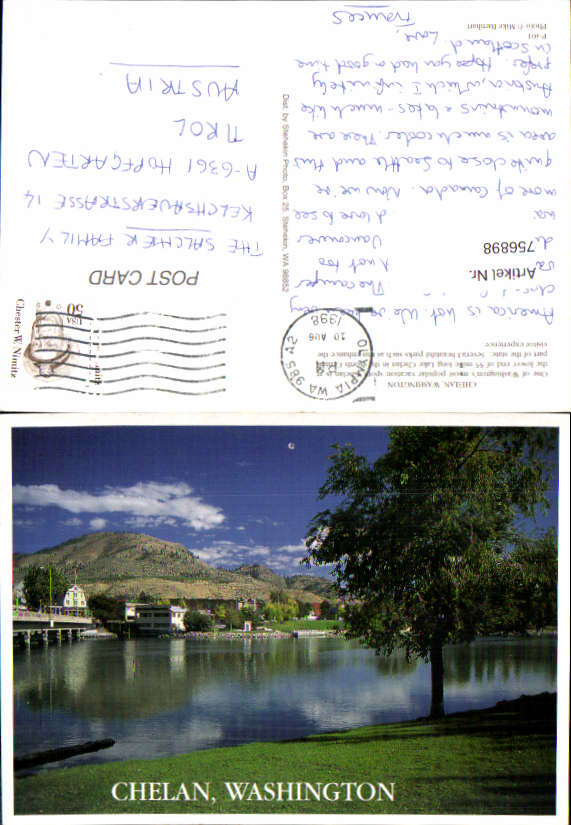 CHELAN, WASHINGTON
One of Washington's most popular vacation spots, Chelan is at
the lower end of 55 mile long Lake Chelan in the North
part of the state. Several beautiful parks such as this enhance the
visitor experience.
America is hot. We've been very
The camper
& not too
Vancouver
I love to see
more of Canada. Now we're
quite close to Seattle and this
area is much cooler. There are
mountains & lakes - much like
Austria, which I infinitely
prefer. Hope you had a good time
in Scotland. Love,
Frances
P-401
Photo © Mike Barnhart
Artikel Nr.
7568898
Dist. by Stehekin Photo, Box 25, Stehekin, WA 98852
POST CARD
OLYMPIA WA 985 #2
10 AUG
1998
USA
50
Chester W. Nimitz
THE SALCHER FAMILY
KELCHSAUERSTRASSE 14
A-6361 HOPFGARTEN
TIROL
AUSTRIA
CHELAN, WASHINGTON